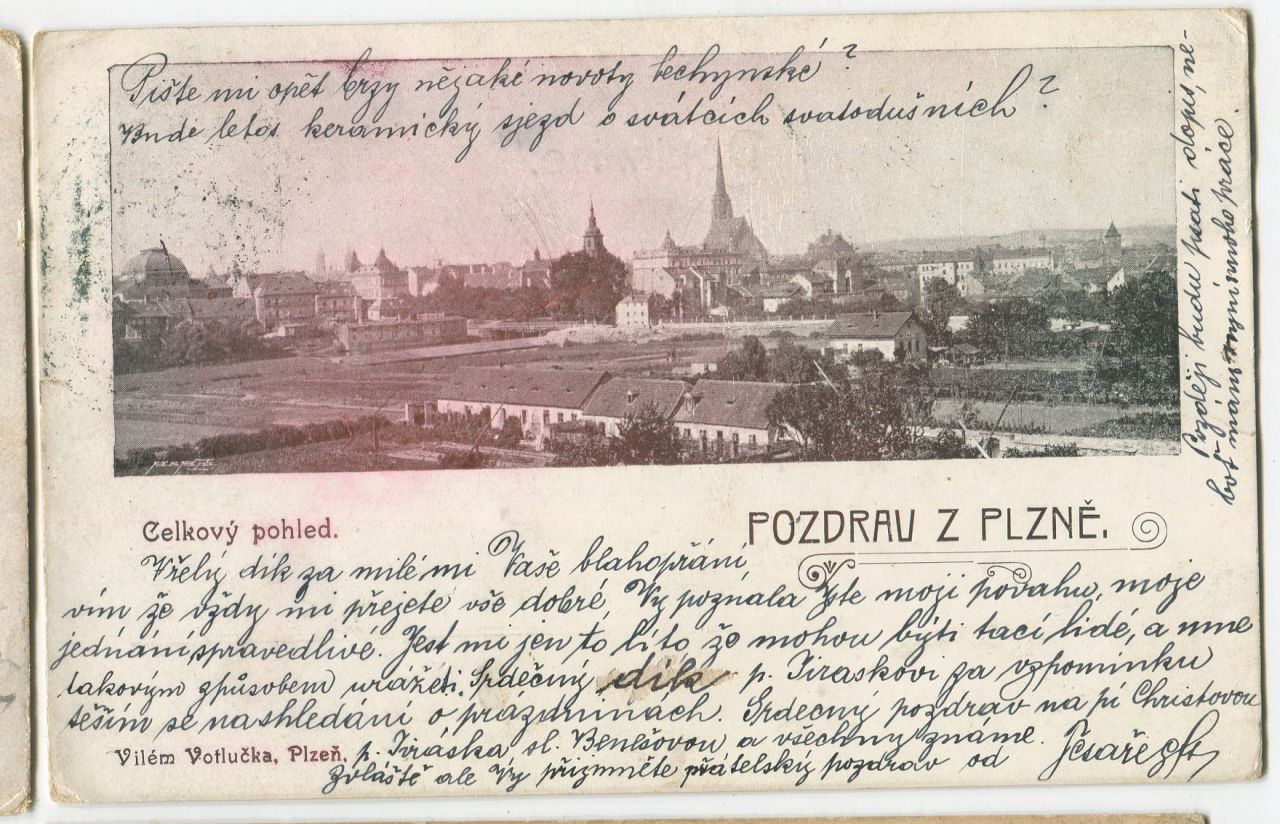 Pište mi opět brzy nějaké novoty bechynské?
Bude letos keramický sjezd o svátcích svatodušních?
Později budu psáti dopis, ne-
boť mám nyní mnoho práce.
Celkový pohled.
POZDRAV Z PLZNĚ.
Vřelý dík za milé mi Vaše blahopřání,
vím že vždy mi přejete vše dobré, Vy poznala jste moji povahu, moje
jednání spravedlivé. Jest mi jen to líto že mohou býti tací lidé, a mne
takovým způsobem urážeti. Srdečný dík p. Jiraskovi za vzpomínku
těším se na shledání o prázdninách. Srdecný pozdrav na pí Christovou
p. Jiráska sl. Benešovou a všechny známé.
Zvláště ale Vy přijměte přátelský pozdrav od
Vilém Votlučka, Plzeň.